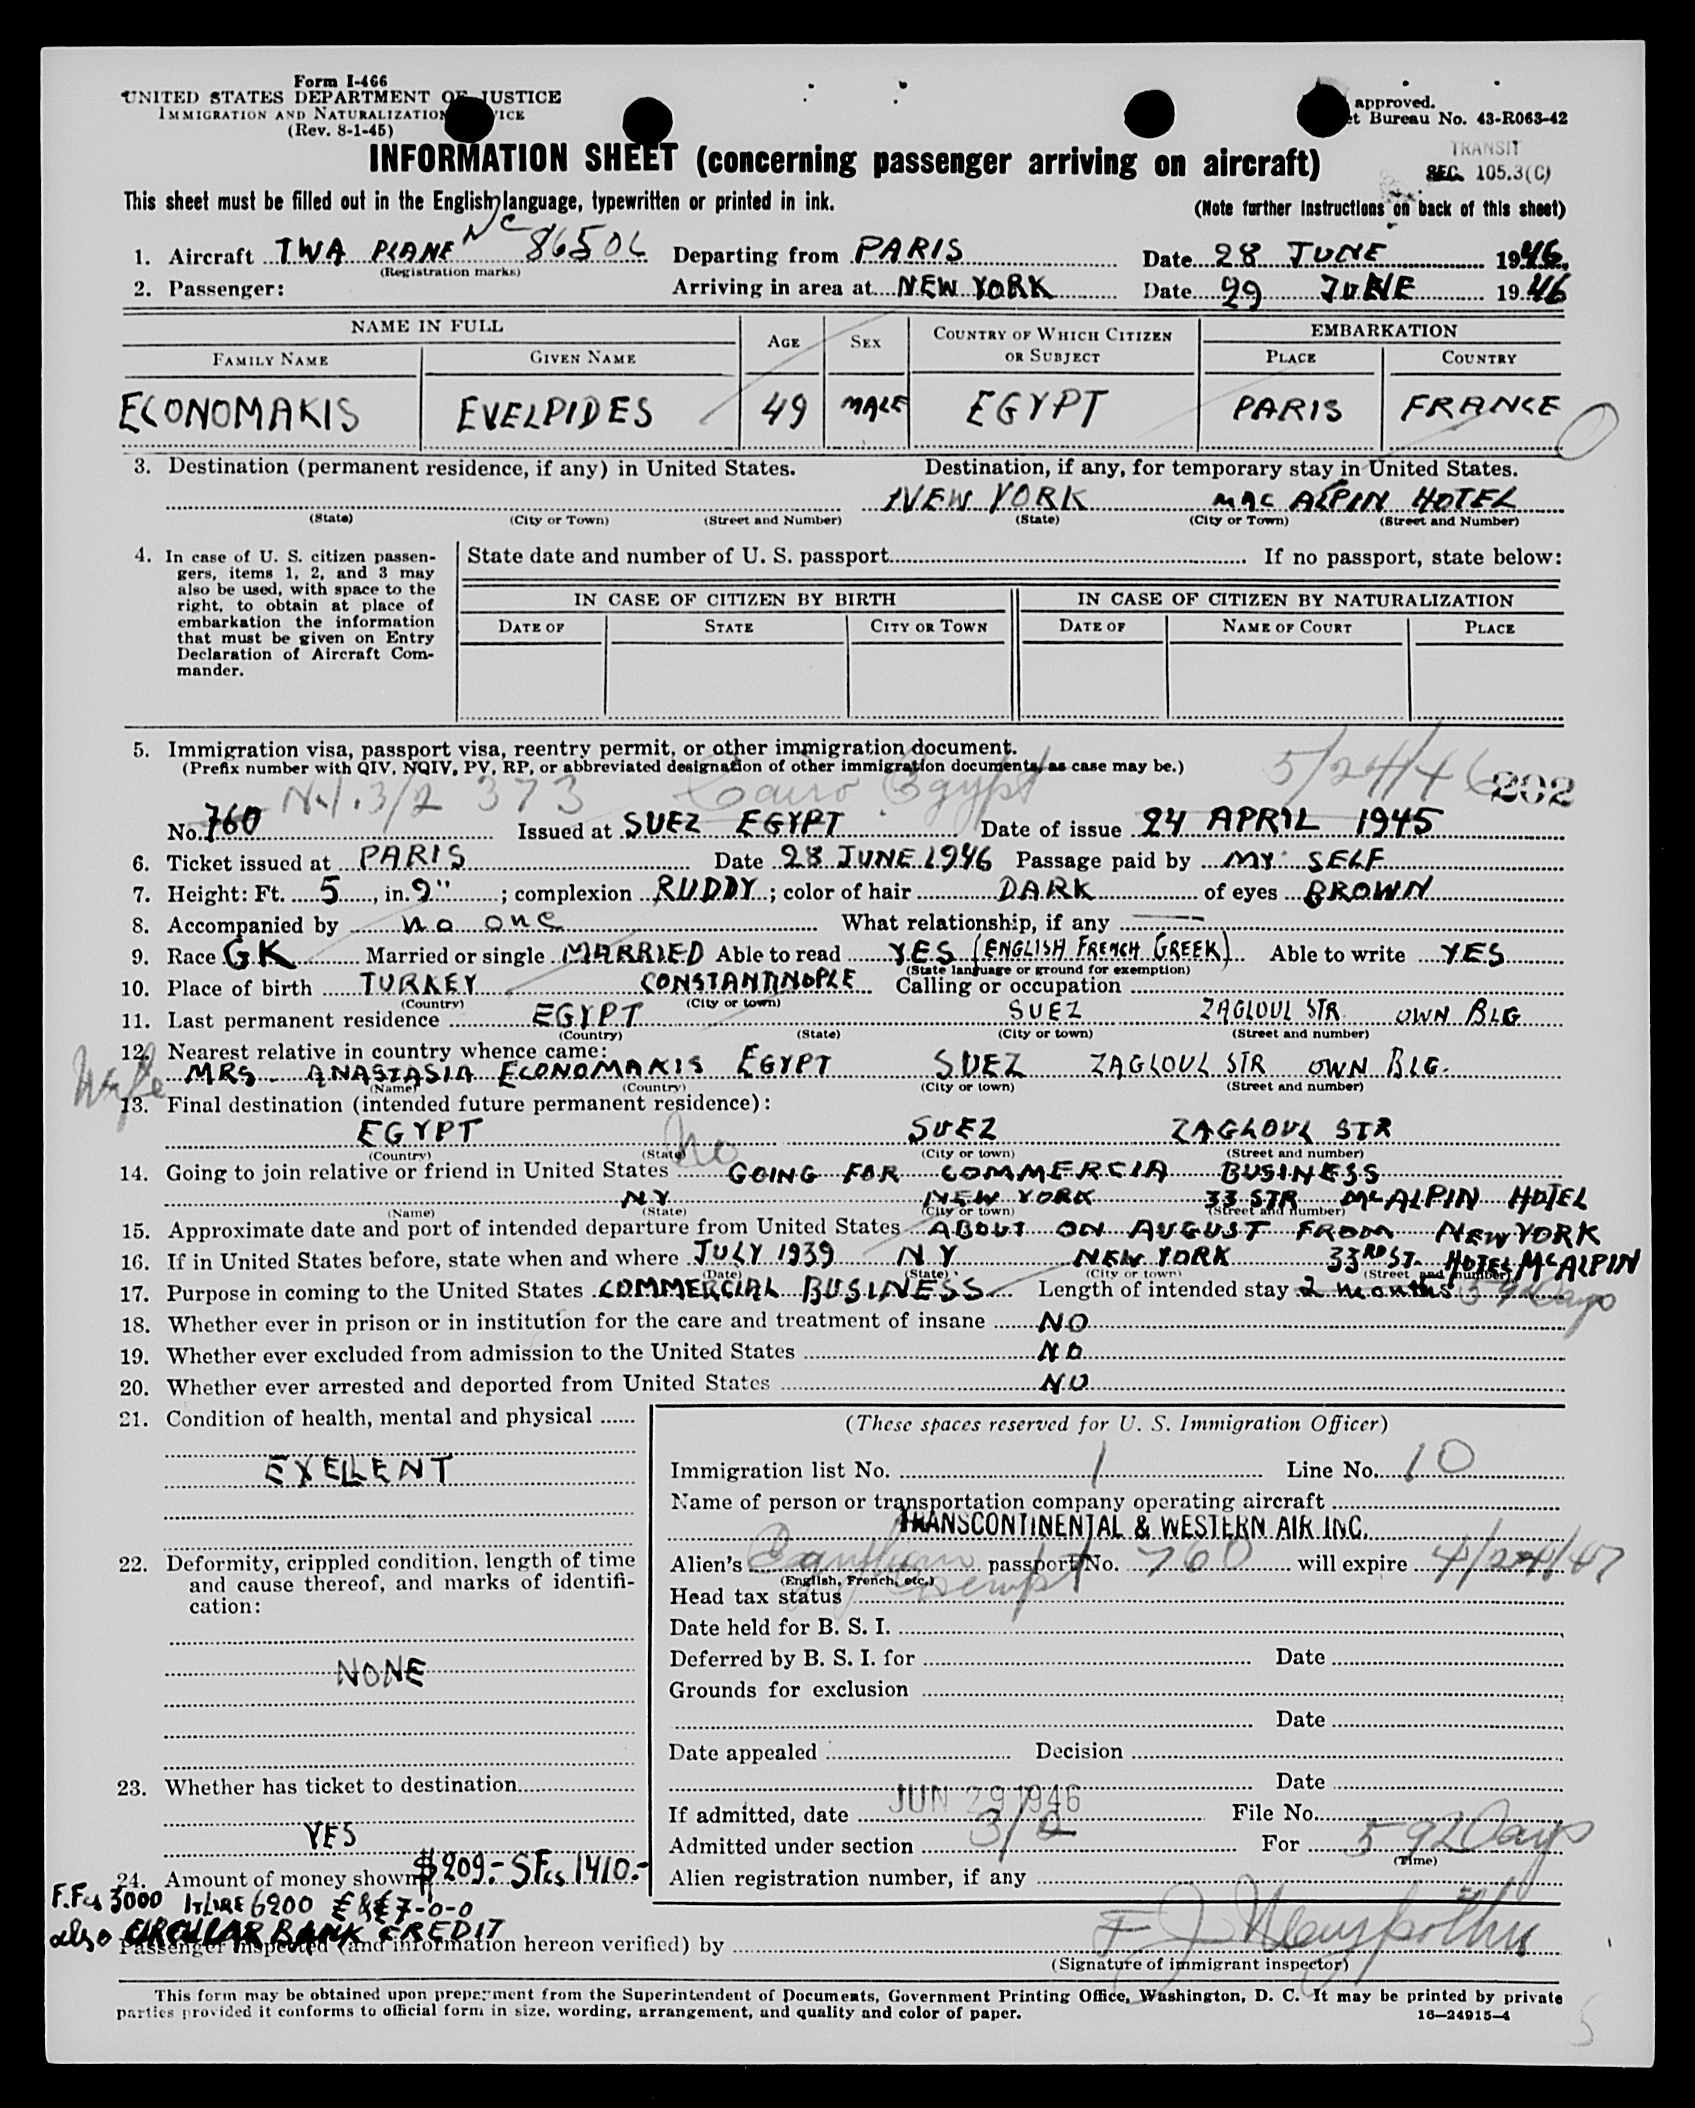 Form I-466
UNITED STATES DEPARTMENT OF JUSTICE
IMMIGRATION AND NATURALIZATION
(Rev. 8-1-45)
approved.
Bureau No. 43-R063-42
TRANSIT
SEC. 105.3(C)
INFORMATION SHEET (concerning passenger arriving on aircraft)
This sheet must be filled out in the English language, typewritten or printed in ink.
(Note further instructions on back of this sheet)
1. Aircraft TWA PLANE NC 86506 Departing from PARIS Date 28 JUNE 1946
(Registration marks)
2. Passenger: Arriving in area at NEW YORK Date 29 JUNE 1946
NAME IN FULL AGE SEX COUNTRY OF WHICH CITIZEN OR SUBJECT EMBARKATION
FAMILY NAME GIVEN NAME PLACE COUNTRY
ECONOMAKIS EVELPIDES 49 MALE EGYPT PARIS FRANCE
3. Destination (permanent residence, if any) in United States. Destination, if any, for temporary stay in United States.
NEW YORK MAC ALPIN HOTEL
(State) (City or Town) (Street and Number) (State) (City or Town) (Street and Number)
4. In case of U. S. citizen passen-
gers, items 1, 2, and 3 may
also be used, with space to the
right, to obtain at place of
embarkation the information
that must be given on Entry
Declaration of Aircraft Com-
mander.
State date and number of U. S. passport If no passport, state below:
IN CASE OF CITIZEN BY BIRTH IN CASE OF CITIZEN BY NATURALIZATION
DATE OF STATE CITY OR TOWN DATE OF NAME OF COURT PLACE
5. Immigration visa, passport visa, reentry permit, or other immigration document.
(Prefix number with QIV, NQIV, PV, RP, or abbreviated designation of other immigration documents, as case may be.)
3/2 373 Cairo Egypt 5/24/46 202
No. 760 Issued at SUEZ EGYPT Date of issue 24 APRIL 1945
6. Ticket issued at PARIS Date 28 JUNE 1946 Passage paid by MY SELF
7. Height: Ft. 5, in. 9"; complexion RUDDY; color of hair DARK of eyes BROWN
8. Accompanied by no one What relationship, if any
9. Race GK Married or single MARRIED Able to read YES (ENGLISH FRENCH GREEK) Able to write YES
(State language or ground for exemption)
10. Place of birth TURKEY CONSTANTINOPLE Calling or occupation
(Country) (City or town)
11. Last permanent residence EGYPT SUEZ ZAGLOUL STR OWN BLG
(Country) (State) (City or town) (Street and number)
12. Nearest relative in country whence came:
Wife MRS. ANASTASIA ECONOMAKIS EGYPT SUEZ ZAGLOUL STR OWN BLG.
(Name) (Country) (City or town) (Street and number)
13. Final destination (intended future permanent residence):
EGYPT SUEZ ZAGLOUL STR
(Country) (State) (City or town) (Street and number)
14. Going to join relative or friend in United States No GOING FOR COMMERCIA BUSINESS
NY NEW YORK 33 STR McALPIN HOTEL
(Name) (State) (City or town) (Street and number)
15. Approximate date and port of intended departure from United States ABOUT ON AUGUST FROM NEW YORK
16. If in United States before, state when and where JULY 1939 NY NEW YORK 33RD ST. HOTEL McALPIN
(Date) (State) (City or town) (Street and number)
17. Purpose in coming to the United States COMMERCIAL BUSINESS Length of intended stay 2 months 59 Days
18. Whether ever in prison or in institution for the care and treatment of insane NO
19. Whether ever excluded from admission to the United States NO
20. Whether ever arrested and deported from United States NO
21. Condition of health, mental and physical
EXELLENT
22. Deformity, crippled condition, length of time
and cause thereof, and marks of identifi-
cation:
NONE
23. Whether has ticket to destination
YES
24. Amount of money shown $209.- SFcs 1410.-
F.Fcs 3000 IT LIRE 6200 £ 7-0-0
also CIRCULAR BANK CREDIT
(These spaces reserved for U. S. Immigration Officer)
Immigration list No. 1 Line No. 10
Name of person or transportation company operating aircraft
TRANSCONTINENTAL & WESTERN AIR INC.
Alien's Egyptian passport No. 760 will expire 4/24/47
(English, French, etc.)
Head tax status exempt
Date held for B. S. I.
Deferred by B. S. I. for Date
Grounds for exclusion
Date
Date appealed Decision
Date
If admitted, date JUN 29 1946 File No.
Admitted under section 3/2 For 59 Days
(Time)
Alien registration number, if any
Passenger inspected (and information hereon verified) by
(Signature of immigrant inspector)
This form may be obtained upon prepayment from the Superintendent of Documents, Government Printing Office, Washington, D. C. It may be printed by private
parties provided it conforms to official form in size, wording, arrangement, and quality and color of paper.
16—24915-4